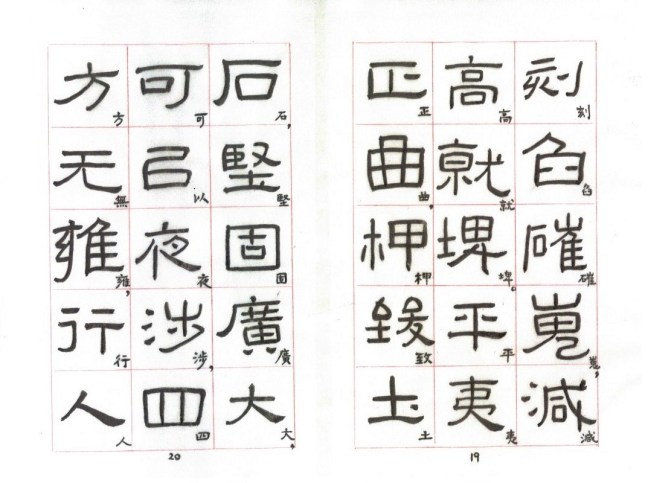 刻臽磪嵬減
刻臽確嵬,減
高就埤平夷
高就埤。平夷
正曲柙致土
正曲,柙致土
19
石堅固廣大
石,堅固廣大,
可㠯夜涉四
可以夜涉,四
方无雍行人
方無雍,行人
20